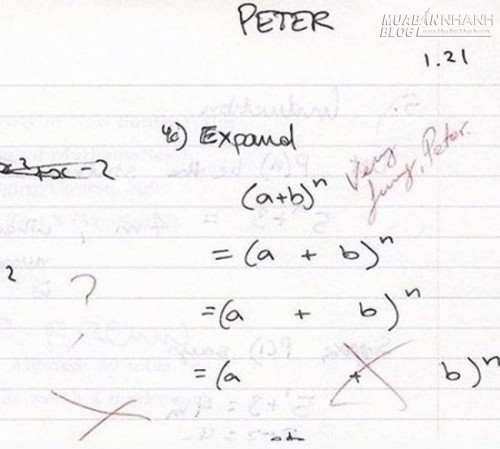 PETER
MUABANNHANH
BLOG
1.21
4c) Expand
x² + x = 2
(a+b)ⁿ
Very funny, Peter.
= (a + b)ⁿ
2
?
= (a + b)ⁿ
= (a + b)ⁿ